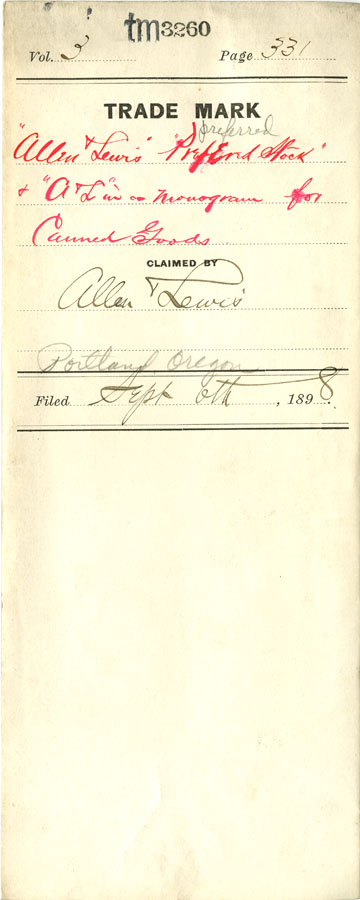 tm3260
Vol. 3 Page 331
TRADE MARK
preferred
"Allen & Lewis" "Preferred Stock"
& "A L" in a monogram for
Canned Goods
CLAIMED BY
Allen & Lewis
Portland, Oregon
Filed Sept 6th, 1898.